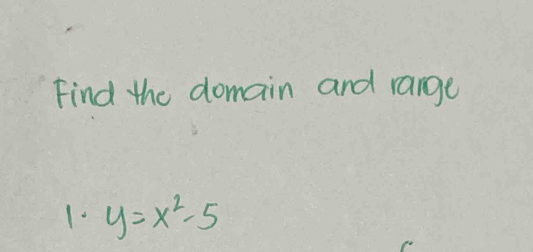 Find the domain and range
1. y = x² - 5